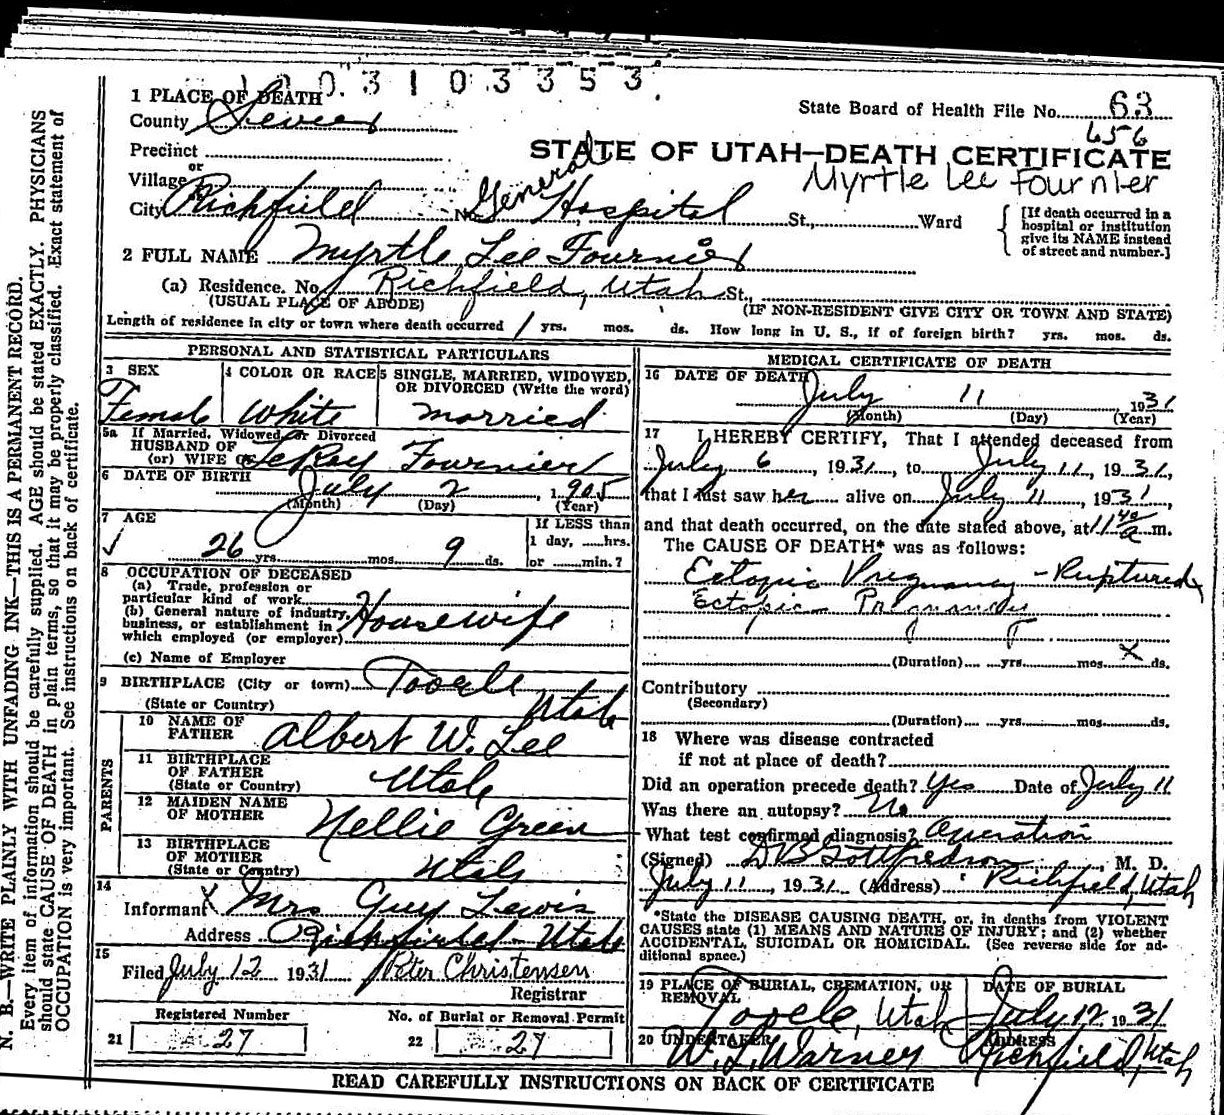 1 2 0 . 3 1 0 3 3 5 3 .
1 PLACE OF DEATH
State Board of Health File No. 63
County Sevier
656
Precinct
STATE OF UTAH—DEATH CERTIFICATE
or
Village
Myrtle Lee Fournier
City Richfield No. General Hospital St., Ward
{ [If death occurred in a
hospital or institution
give its NAME instead
of street and number.]
2 FULL NAME Myrtle Lee Fournier
(a) Residence. No. Richfield, Utah St.,
(USUAL PLACE OF ABODE) (IF NON-RESIDENT GIVE CITY OR TOWN AND STATE)
Length of residence in city or town where death occurred 1 yrs. mos. ds. How long in U. S., if of foreign birth? yrs. mos. ds.
PERSONAL AND STATISTICAL PARTICULARS
3 SEX
Female
4 COLOR OR RACE
White
5 SINGLE, MARRIED, WIDOWED,
OR DIVORCED (Write the word)
married
5a If Married, Widowed or Divorced
HUSBAND OF
(or) WIFE OF LeRoy Fournier
6 DATE OF BIRTH July 2, 1905
(Month) (Day) (Year)
7 AGE
26 yrs. mos. 9 ds.
If LESS than
1 day, hrs.
or min.?
8 OCCUPATION OF DECEASED
(a) Trade, profession or
particular kind of work
(b) General nature of industry,
business, or establishment in
which employed (or employer) Housewife
(c) Name of Employer
9 BIRTHPLACE (City or town) Tooele
(State or Country) Utah
PARENTS
10 NAME OF
FATHER Albert W. Lee
11 BIRTHPLACE
OF FATHER
(State or Country) Utah
12 MAIDEN NAME
OF MOTHER Nellie Green
13 BIRTHPLACE
OF MOTHER
(State or Country) Utah
14
Informant x Mrs Guy Lewis
Address Richfield Utah
15
Filed July 12 1931 Peter Christensen
Registrar
Registered Number
21 27
No. of Burial or Removal Permit
22 27
MEDICAL CERTIFICATE OF DEATH
16 DATE OF DEATH July 11 1931
(Month) (Day) (Year)
17 I HEREBY CERTIFY, That I attended deceased from
July 6, 1931, to July 11, 1931,
that I last saw her alive on July 11, 1931,
and that death occurred, on the date stated above, at 11 40 a m.
The CAUSE OF DEATH* was as follows:
Ectopic Pregnancy - Ruptured
Ectopic Pregnancy
(Duration) yrs. mos. x ds.
Contributory
(Secondary)
(Duration) yrs. mos. ds.
18 Where was disease contracted
if not at place of death?
Did an operation precede death? Yes Date of July 11
Was there an autopsy? No
What test confirmed diagnosis? Operation
(Signed) D B Gottfredson, M. D.
July 11, 1931 (Address) Richfield, Utah
*State the DISEASE CAUSING DEATH, or, in deaths from VIOLENT
CAUSES state (1) MEANS AND NATURE OF INJURY; and (2) whether
ACCIDENTAL, SUICIDAL OR HOMICIDAL. (See reverse side for ad-
ditional space.)
19 PLACE OF BURIAL, CREMATION, OR
REMOVAL
Tooele, Utah
DATE OF BURIAL
July 12, 1931
20 UNDERTAKER
W. L. Warner
ADDRESS
Richfield, Utah
READ CAREFULLY INSTRUCTIONS ON BACK OF CERTIFICATE
N. B.—WRITE PLAINLY WITH UNFADING INK—THIS IS A PERMANENT RECORD.
Every item of information should be carefully supplied. AGE should be stated EXACTLY. PHYSICIANS
should state CAUSE OF DEATH in plain terms, so that it may be properly classified. Exact statement of
OCCUPATION is very important. See instructions on back of certificate.